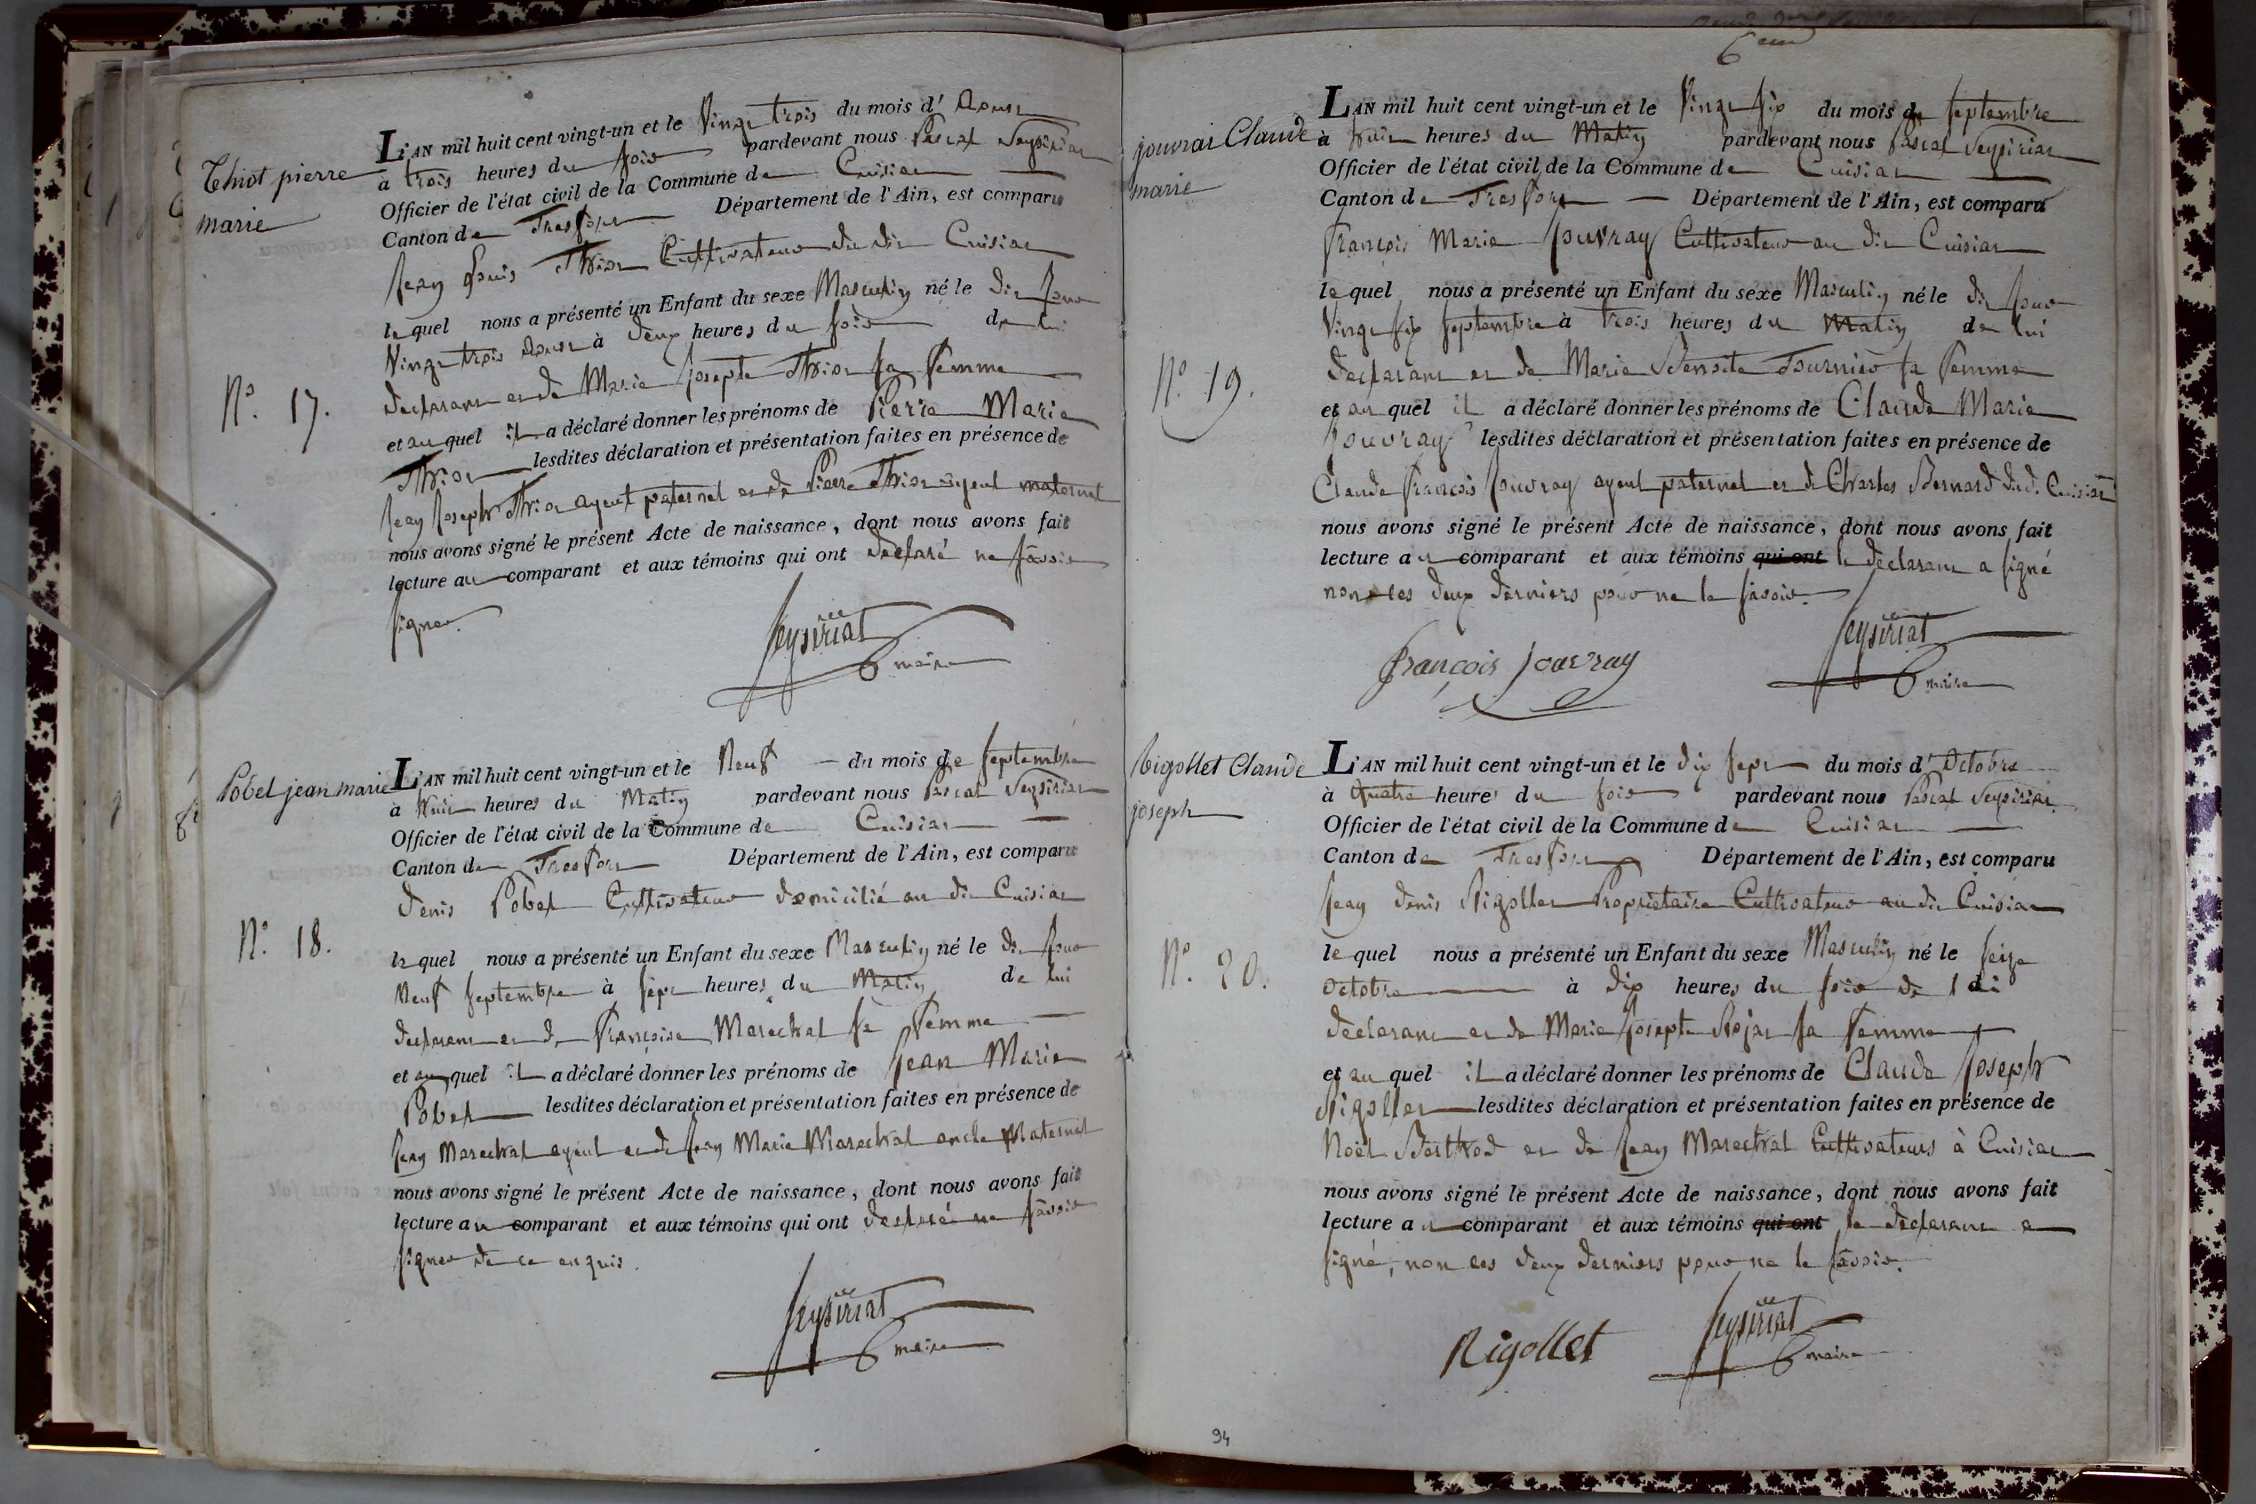 Thiot pierre
marie
N.o 17.
L'AN mil huit cent vingt-un et le Vingt trois du mois d' Aoust
à trois heures du soir pardevant nous Pascal Seysiriat
Officier de l'état civil de la Commune de Cuisiat
Canton de Tresfort Département de l'Ain, est comparu
Jean Louis Thiot Cultivateur du dit Cuisiat
lequel nous a présenté un Enfant du sexe Masculin né le dit Jour
Vingt trois Aoust à deux heures du soir de lui
declarant et de Marie Josepte Thiot sa femme
et auquel il a déclaré donner les prénoms de Pierre Marie
Thiot lesdites déclaration et présentation faites en présence de
Jean Joseph Thiot ayeul paternel et de Pierre Thiot ayeul maternel
nous avons signé le présent Acte de naissance, dont nous avons fait
lecture au comparant et aux témoins qui ont déclaré ne savoir
signer.
Seysiriat
maire
Pobel jean marie
N.o 18.
L'AN mil huit cent vingt-un et le Neuf du mois de Septembre
à huit heures du Matin pardevant nous Pascal Seysiriat
Officier de l'état civil de la Commune de Cuisiat
Canton de Tresfort Département de l'Ain, est comparu
Denis Pobel Cultivateur domicilié au dit Cuisiat
lequel nous a présenté un Enfant du sexe Masculin né le dit Jour
Neuf Septembre à sept heures du Matin de lui
declarant et de Françoise Marechal sa femme
et auquel il a déclaré donner les prénoms de Jean Marie
Pobel lesdites déclaration et présentation faites en présence de
Jean Marechal ayeul et de Jean Marie Marechal oncle Maternel
nous avons signé le présent Acte de naissance, dont nous avons fait
lecture au comparant et aux témoins qui ont declaré ne savoir
signer de ce enquis.
Seysiriat
maire
6eme
jouvrai Claude
marie
N.o 19.
L'AN mil huit cent vingt-un et le Vingt six du mois de septembre
à huit heures du Matin pardevant nous Pascal Seysiriat
Officier de l'état civil de la Commune de Cuisiat
Canton de Tresfort Département de l'Ain, est comparu
François Marie Jouvray Cultivateur au dit Cuisiat
lequel nous a présenté un Enfant du sexe Masculin né le dit Jour
Vingt six septembre à trois heures du Matin de lui
declarant et de Marie Benoite Fournier sa femme
et au quel il a déclaré donner les prénoms de Claude Marie
Jouvray lesdites déclaration et présentation faites en présence de
Claude François Jouvray ayeul paternel et de Charles Bernard dud. Cuisiat
nous avons signé le présent Acte de naissance, dont nous avons fait
lecture au comparant et aux témoins qui ont le declarant a signé
non les deux derniers pour ne le savoir.
François Jouvray
Seysiriat
maire
Rigollet Claude
joseph
N.o 20.
L'AN mil huit cent vingt-un et le dix sept du mois d' Octobre
à Quatre heures du soir pardevant nous Pascal Seysiriat
Officier de l'état civil de la Commune de Cuisiat
Canton de Tresfort Département de l'Ain, est comparu
Jean Denis Rigollet Propriétaire Cultivateur au dit Cuisiat
lequel nous a présenté un Enfant du sexe Masculin né le seize
octobre à dix heures du soir de lui
declarant et de Marie Josepte Rojat sa femme
et au quel il a déclaré donner les prénoms de Claude Joseph
Rigollet lesdites déclaration et présentation faites en présence de
Noël Berthod et de Jean Marechal Cultivateurs à Cuisiat
nous avons signé le présent Acte de naissance, dont nous avons fait
lecture au comparant et aux témoins qui ont le declarant a
signé, non les deux derniers pour ne le savoir.
Rigollet
Seysiriat
maire
94